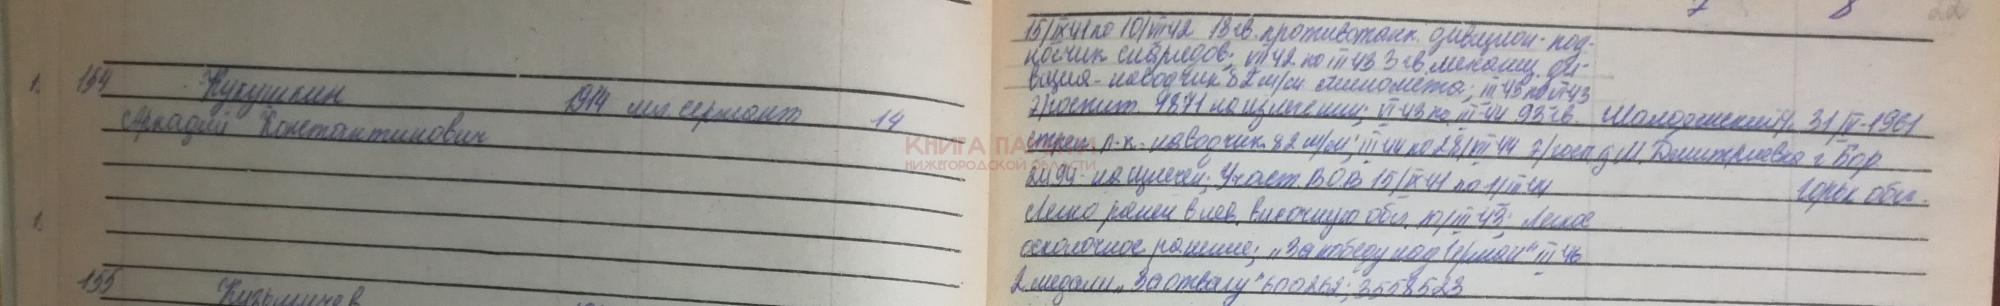 7 8 22
15/IX 41 по 10/VII 42 13 гв. противотанк. дивизион - под-
носчик снарядов; VII 42 по III 43 3 гв. механиз. ди-
визия - наводчик 82 м/м миномета; III 43 по VI 43
1. 154 Кукушкин 1914 мл. сержант 14
Аркадий Константинович
г/госпит. 9871 на излечении; VI 43 по III 44 93 гв. 31/IV-1961
стрел. п-к - наводчик 82 м/м; III 44 по 28/VII 44 г/госп д. М. Дмитриевка г. Бор
2494 - на излечен; Участ. ВОВ 15/IX 41 по 1/III 44 Горьк. обл.
Легко ранен в лев. височную обл. 10/III 43; Легкое
осколочное ранение; "За победу над Герман" III 46
2 медали "За отвагу" 600262; 3558523
1.
155 Кузьмичев
КНИГА ПАМЯТИ
НИЖЕГОРОДСКОЙ ОБЛАСТИ